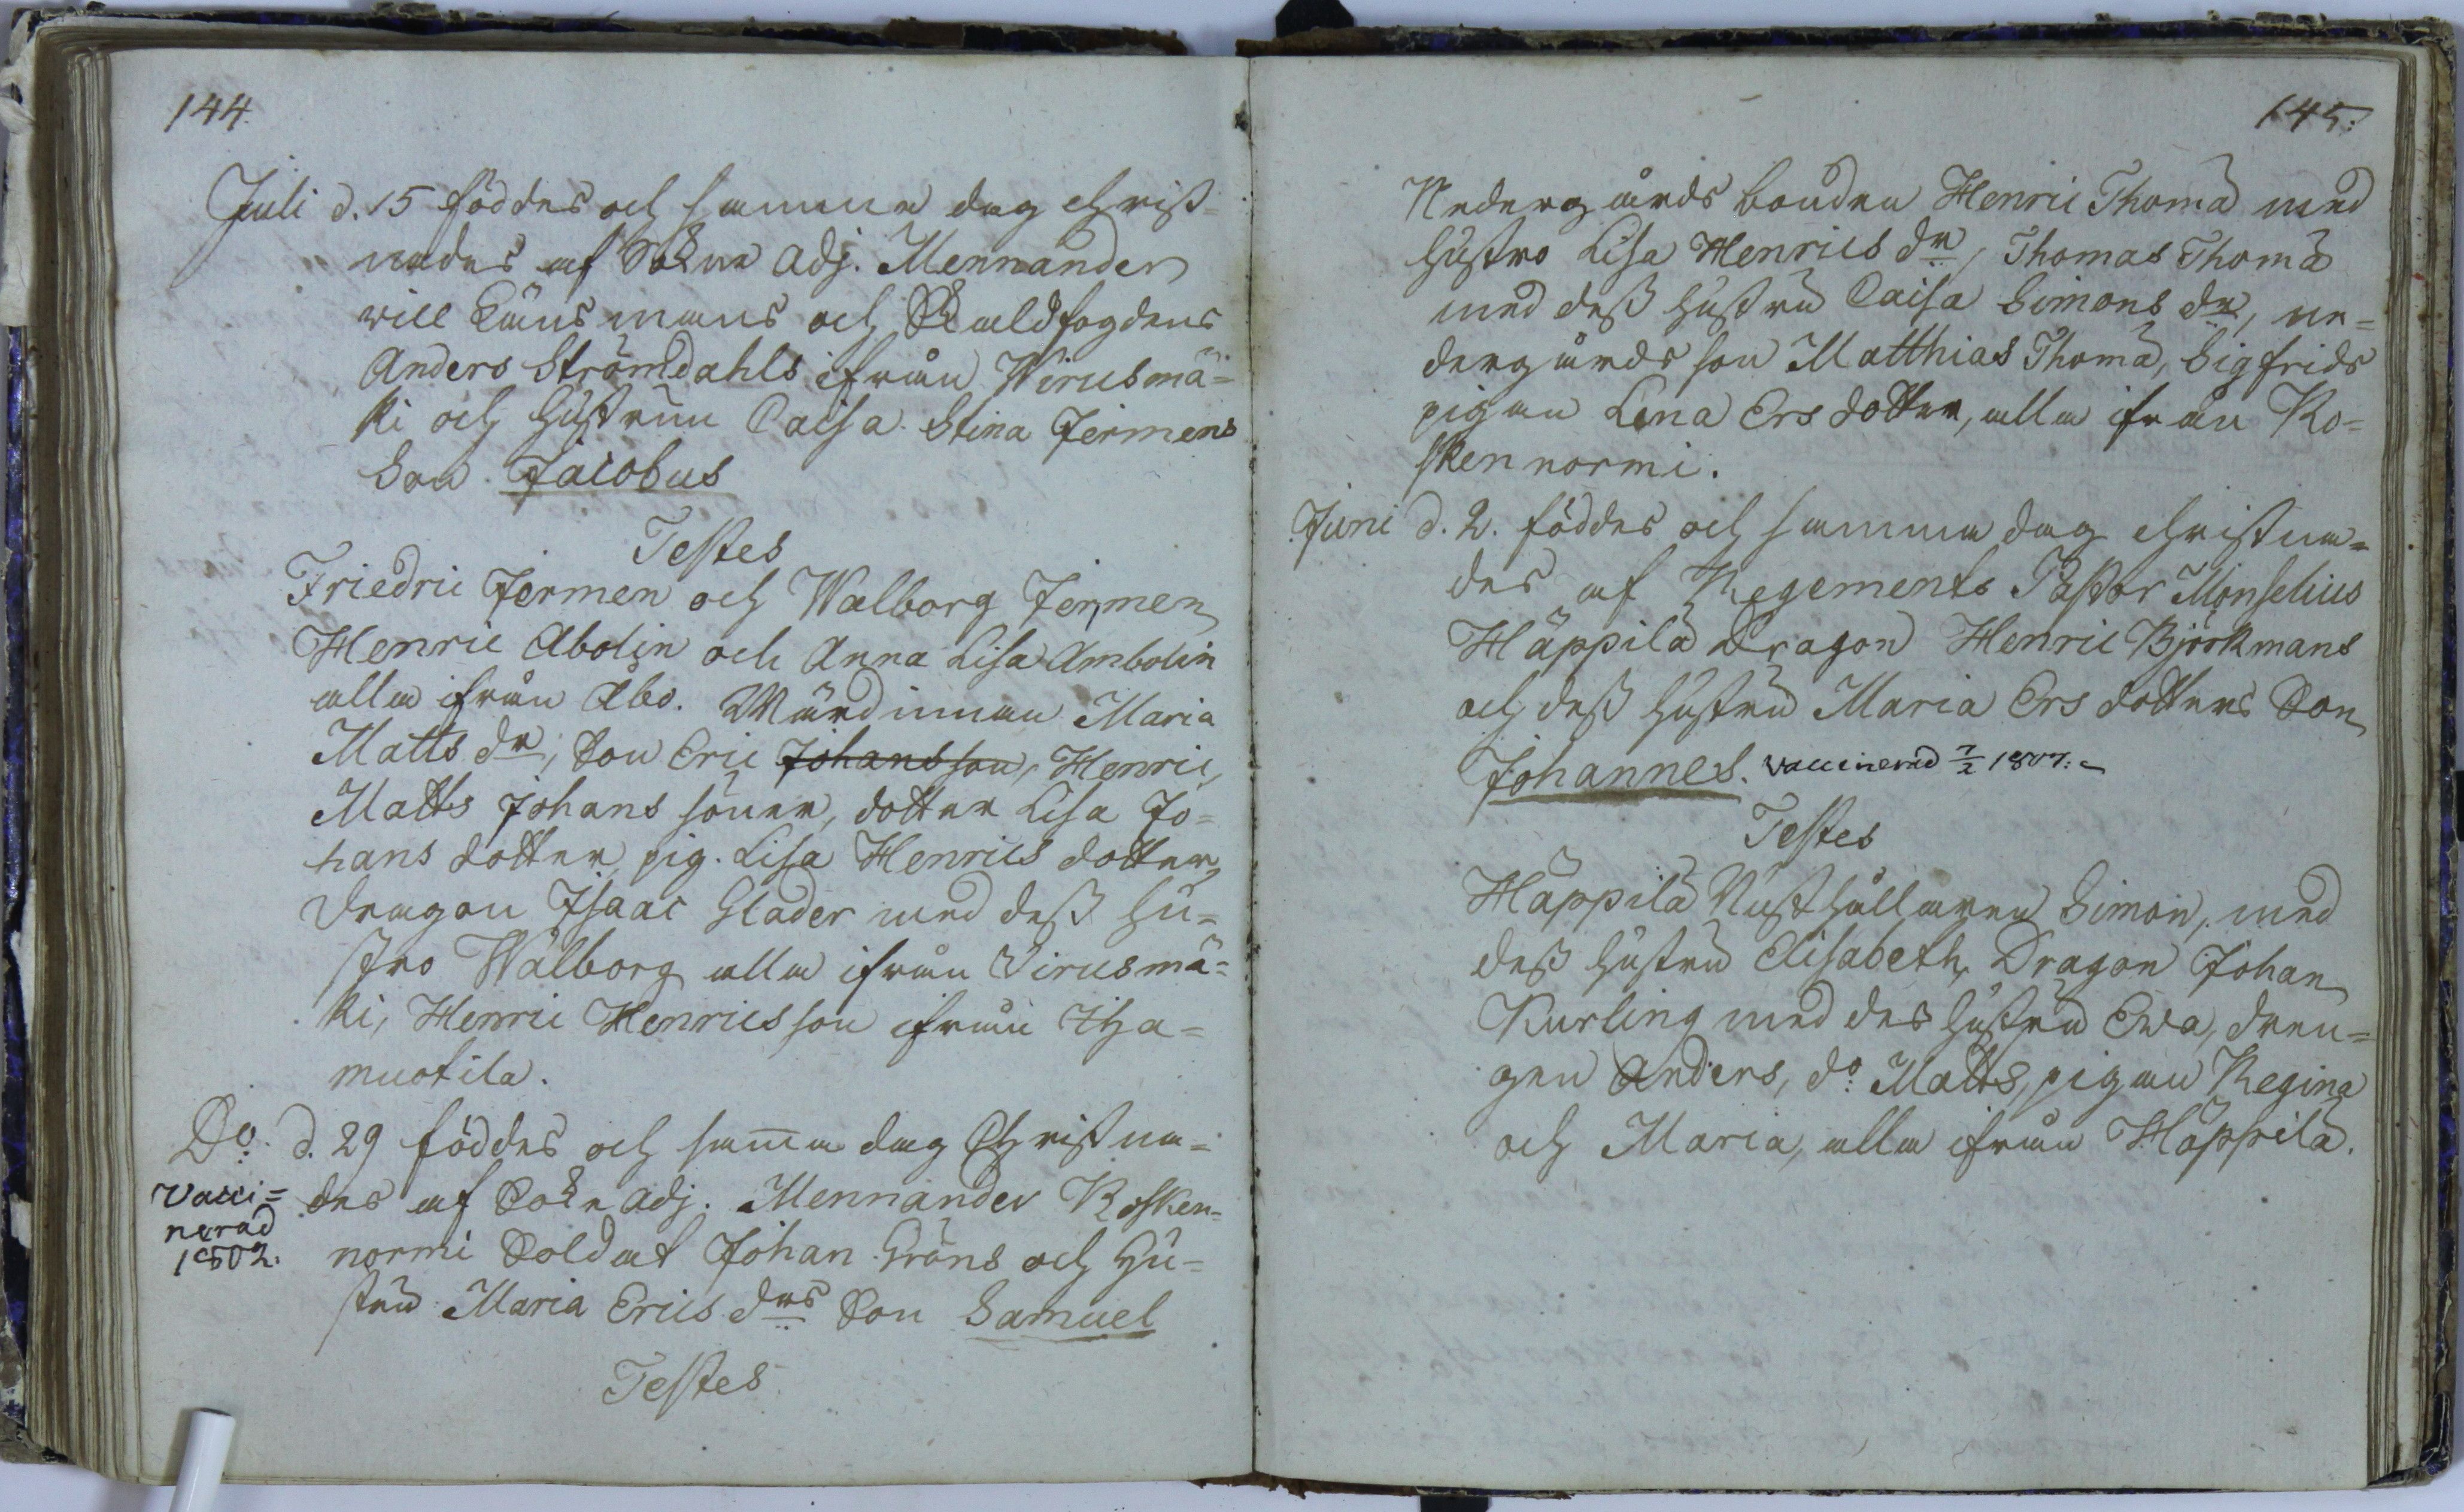 144.
Juli d. 15 föddes och samma dag christ-
nades af Sokne Adj. Mennander
vice Länsmans och Skaldfogdens
Anders Strömdahls ifrån Wirusmä=
ki och hustrun Caisa Stina Jermens
Son Jacobus
Testes
Friedric Jermen och Walborg Jermen
Henric Abolin och Anna Lisa Ambolin
alla ifrån Åbo. Wärdinnan Maria
Matts dr, Son Eric Johansson, Henric,
Matts Johans söner, dotter Lisa Jo=
hans dotter, pig. Lisa Henrics dotter,
Dragon Isaac Glader med dess hu=
stro Wallborg alla ifrån Virusmä=
ki, Henric Henricsson ifrån Iha=
muotila.
Do. d. 29 föddes och samma dag Christna=
des af Sokne Adj. Mennander Kosken=
normi Soldat Johan Gröns och Hu=
stru Maria Erics drs Son Samuel
Testes
Vacci=
nerad
1802.
145:
Nedergårds bonden Henric Thomä med
hustro Lisa Henrics dr, Thomas Thomä
med dess hustru Caisa Simons dr, ne=
dergårds son Matthias Thomä, Sigfrids
pigan Lena Ersdotter, alla ifrån Ko=
skennormi.
Juni d. 2. föddes och samma dag christna=
des af Regements Pastor Monselius
Häppilä Dragon Henric Björkmans
och dess hustru Maria Ersdotters Son
Johannes. Vaccinerad 7/2 1807.
Testes
Häppilä Rusthållaren Simon, med
dess hustru Elisabeth, Dragon Johan
Kurling med des hustru Ewa, dren=
gen Anders, do Matts, pigan Regina
och Maria, alla ifrån Häppilä.